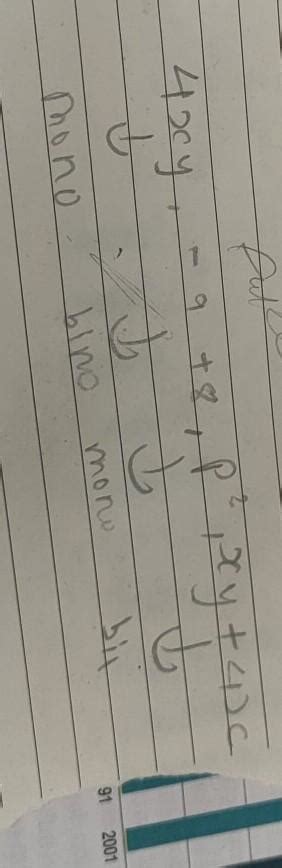 4xy, -9 +8, p², xy + 4x
mono bino mono bi
91 2001